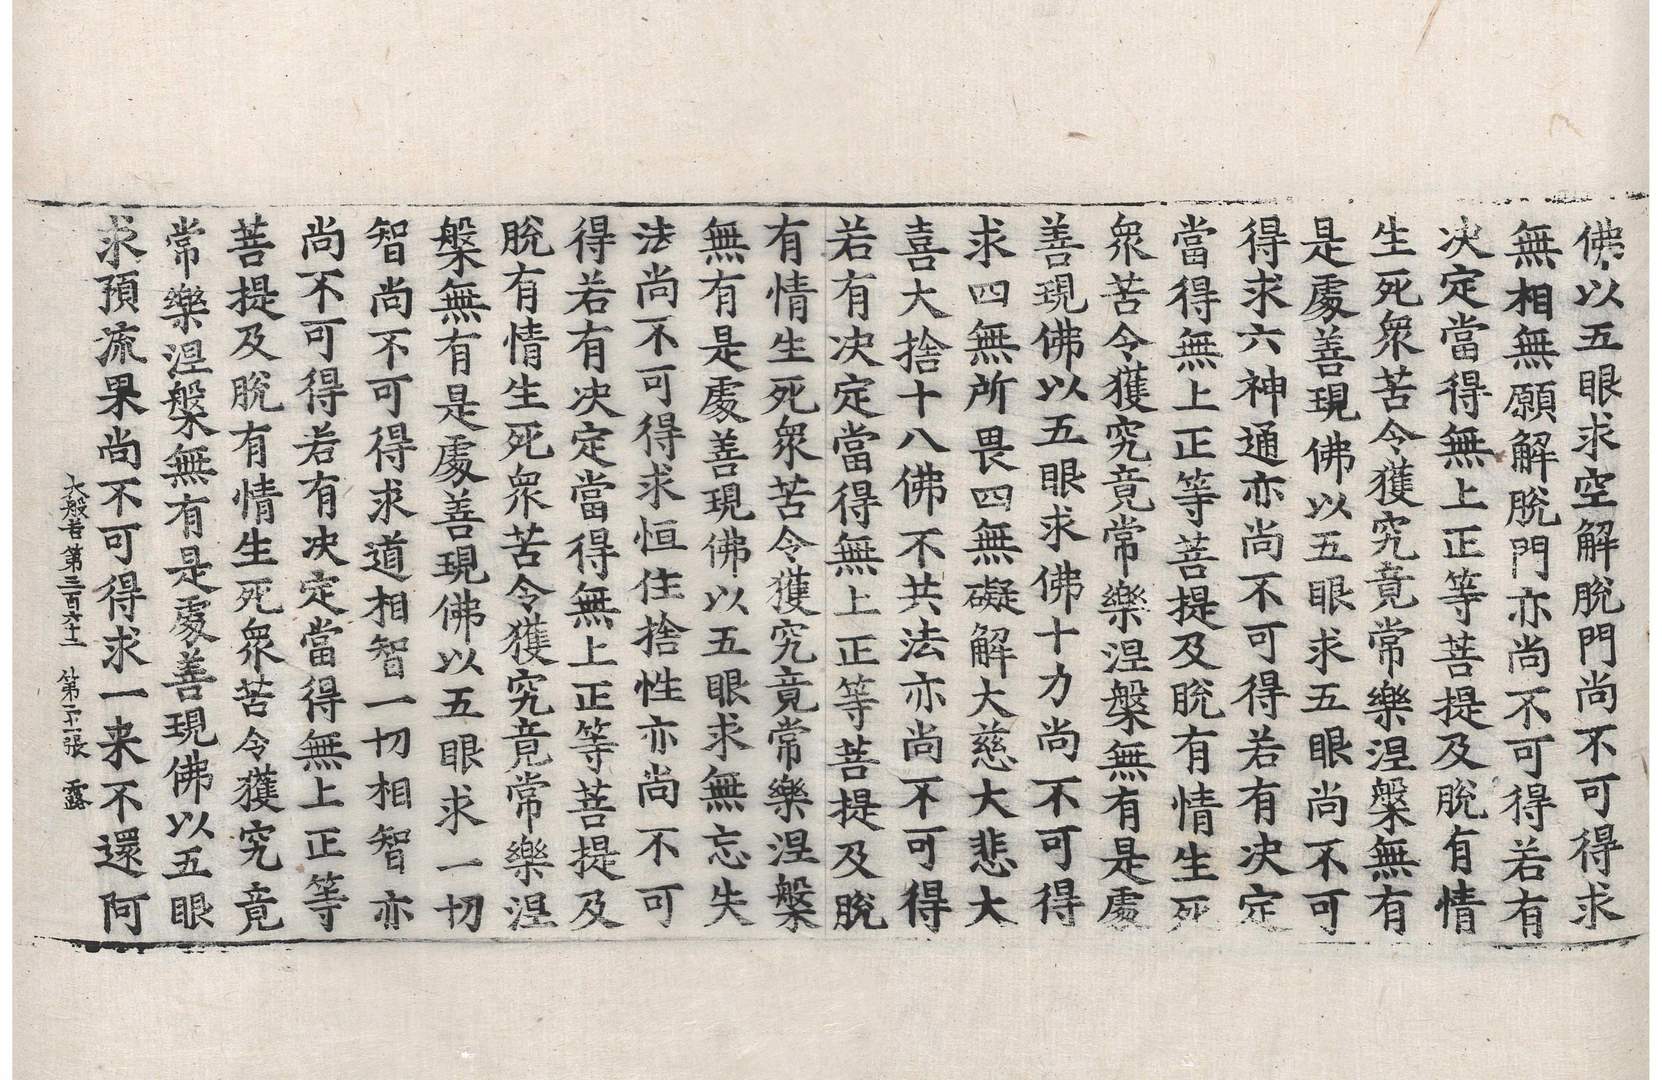 佛以五眼求空解脫門尚不可得求
無相無願解脫門亦尚不可得若有
决定當得無上正等菩提及脫有情
生死衆苦令獲究竟常樂涅槃無有
是處善現佛以五眼求五眼尚不可
得求六神通亦尚不可得若有决定
當得無上正等菩提及脫有情生死
衆苦令獲究竟常樂涅槃無有是處
善現佛以五眼求佛十力尚不可得
求四無所畏四無礙解大慈大悲大
喜大捨十八佛不共法亦尚不可得
若有决定當得無上正等菩提及脫
有情生死衆苦令獲究竟常樂涅槃
無有是處善現佛以五眼求無忘失
法尚不可得求恒住捨性亦尚不可
得若有决定當得無上正等菩提及
脫有情生死衆苦令獲究竟常樂涅
槃無有是處善現佛以五眼求一切
智尚不可得求道相智一切相智亦
尚不可得若有决定當得無上正等
菩提及脫有情生死衆苦令獲究竟
常樂涅槃無有是處善現佛以五眼
求預流果尚不可得求一来不還阿
大般若第三百六十一 第張 露